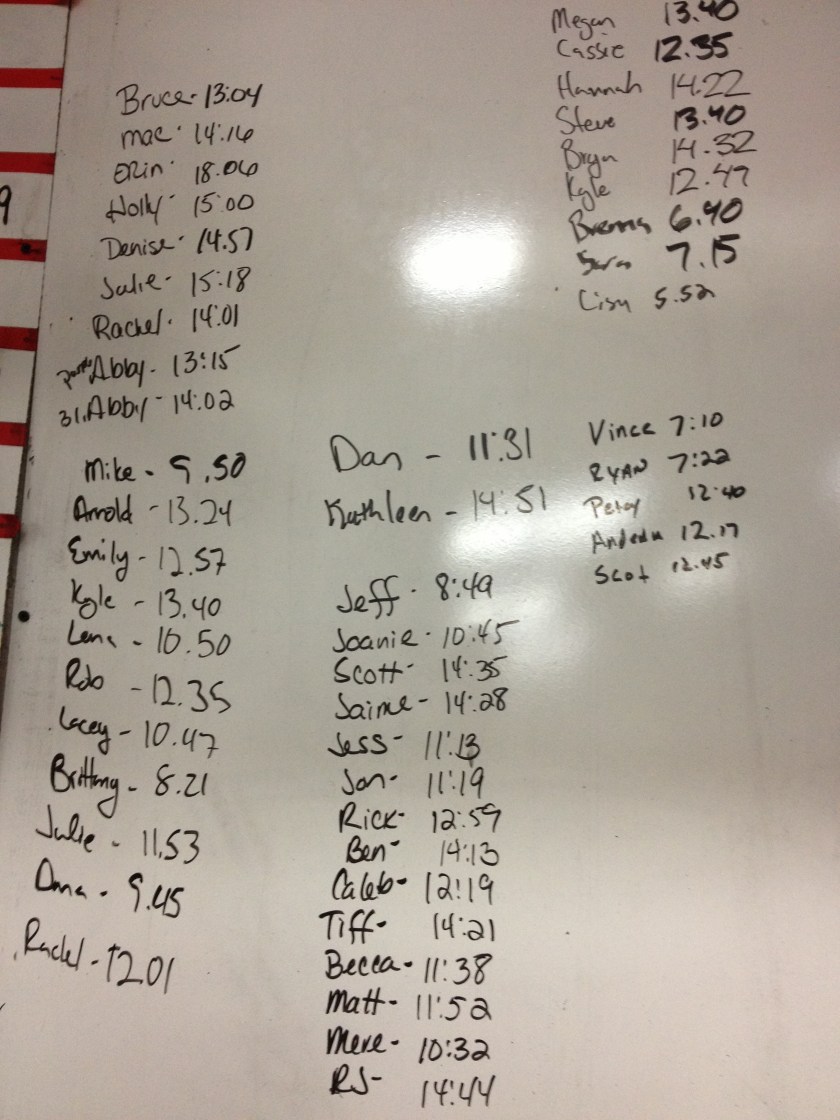 9
Bruce- 13:04
mac- 14:16
ERin- 18:06
Holly- 15:00
Denise- 14:57
Julie- 15:18
Rachel- 14:01
Abby- 13:15
31, Abby- 14:02
Mike - 9.50
Arnold - 13.24
Emily - 12.57
Kyle - 13.40
Lena - 10.50
Rob - 12.35
Lacey - 10.47
Brittany - 8.21
Julie - 11.53
Dana - 9.45
Rachel - 12.01
Dan - 11:31
Kathleen - 14:51
Jeff - 8:49
Joanie - 10:45
Scott- 14:35
Jaime- 14:28
Jess- 11:13
Jon- 11:19
Rick- 12:59
Ben- 14:13
Caleb- 12:19
Tiff- 14:21
Becca- 11:38
Matt- 11:52
Mere- 10:32
RJ- 14:44
Megan 13.40
Cassie 12.35
Hannah 14.22
Steve 13.40
Bryn 14.32
Kyle 12.47
Brenna 6.40
Sara 7.15
Lisa 5.52
Vince 7:10
RYAN 7:22
12:40
12.17
Scot 12.45